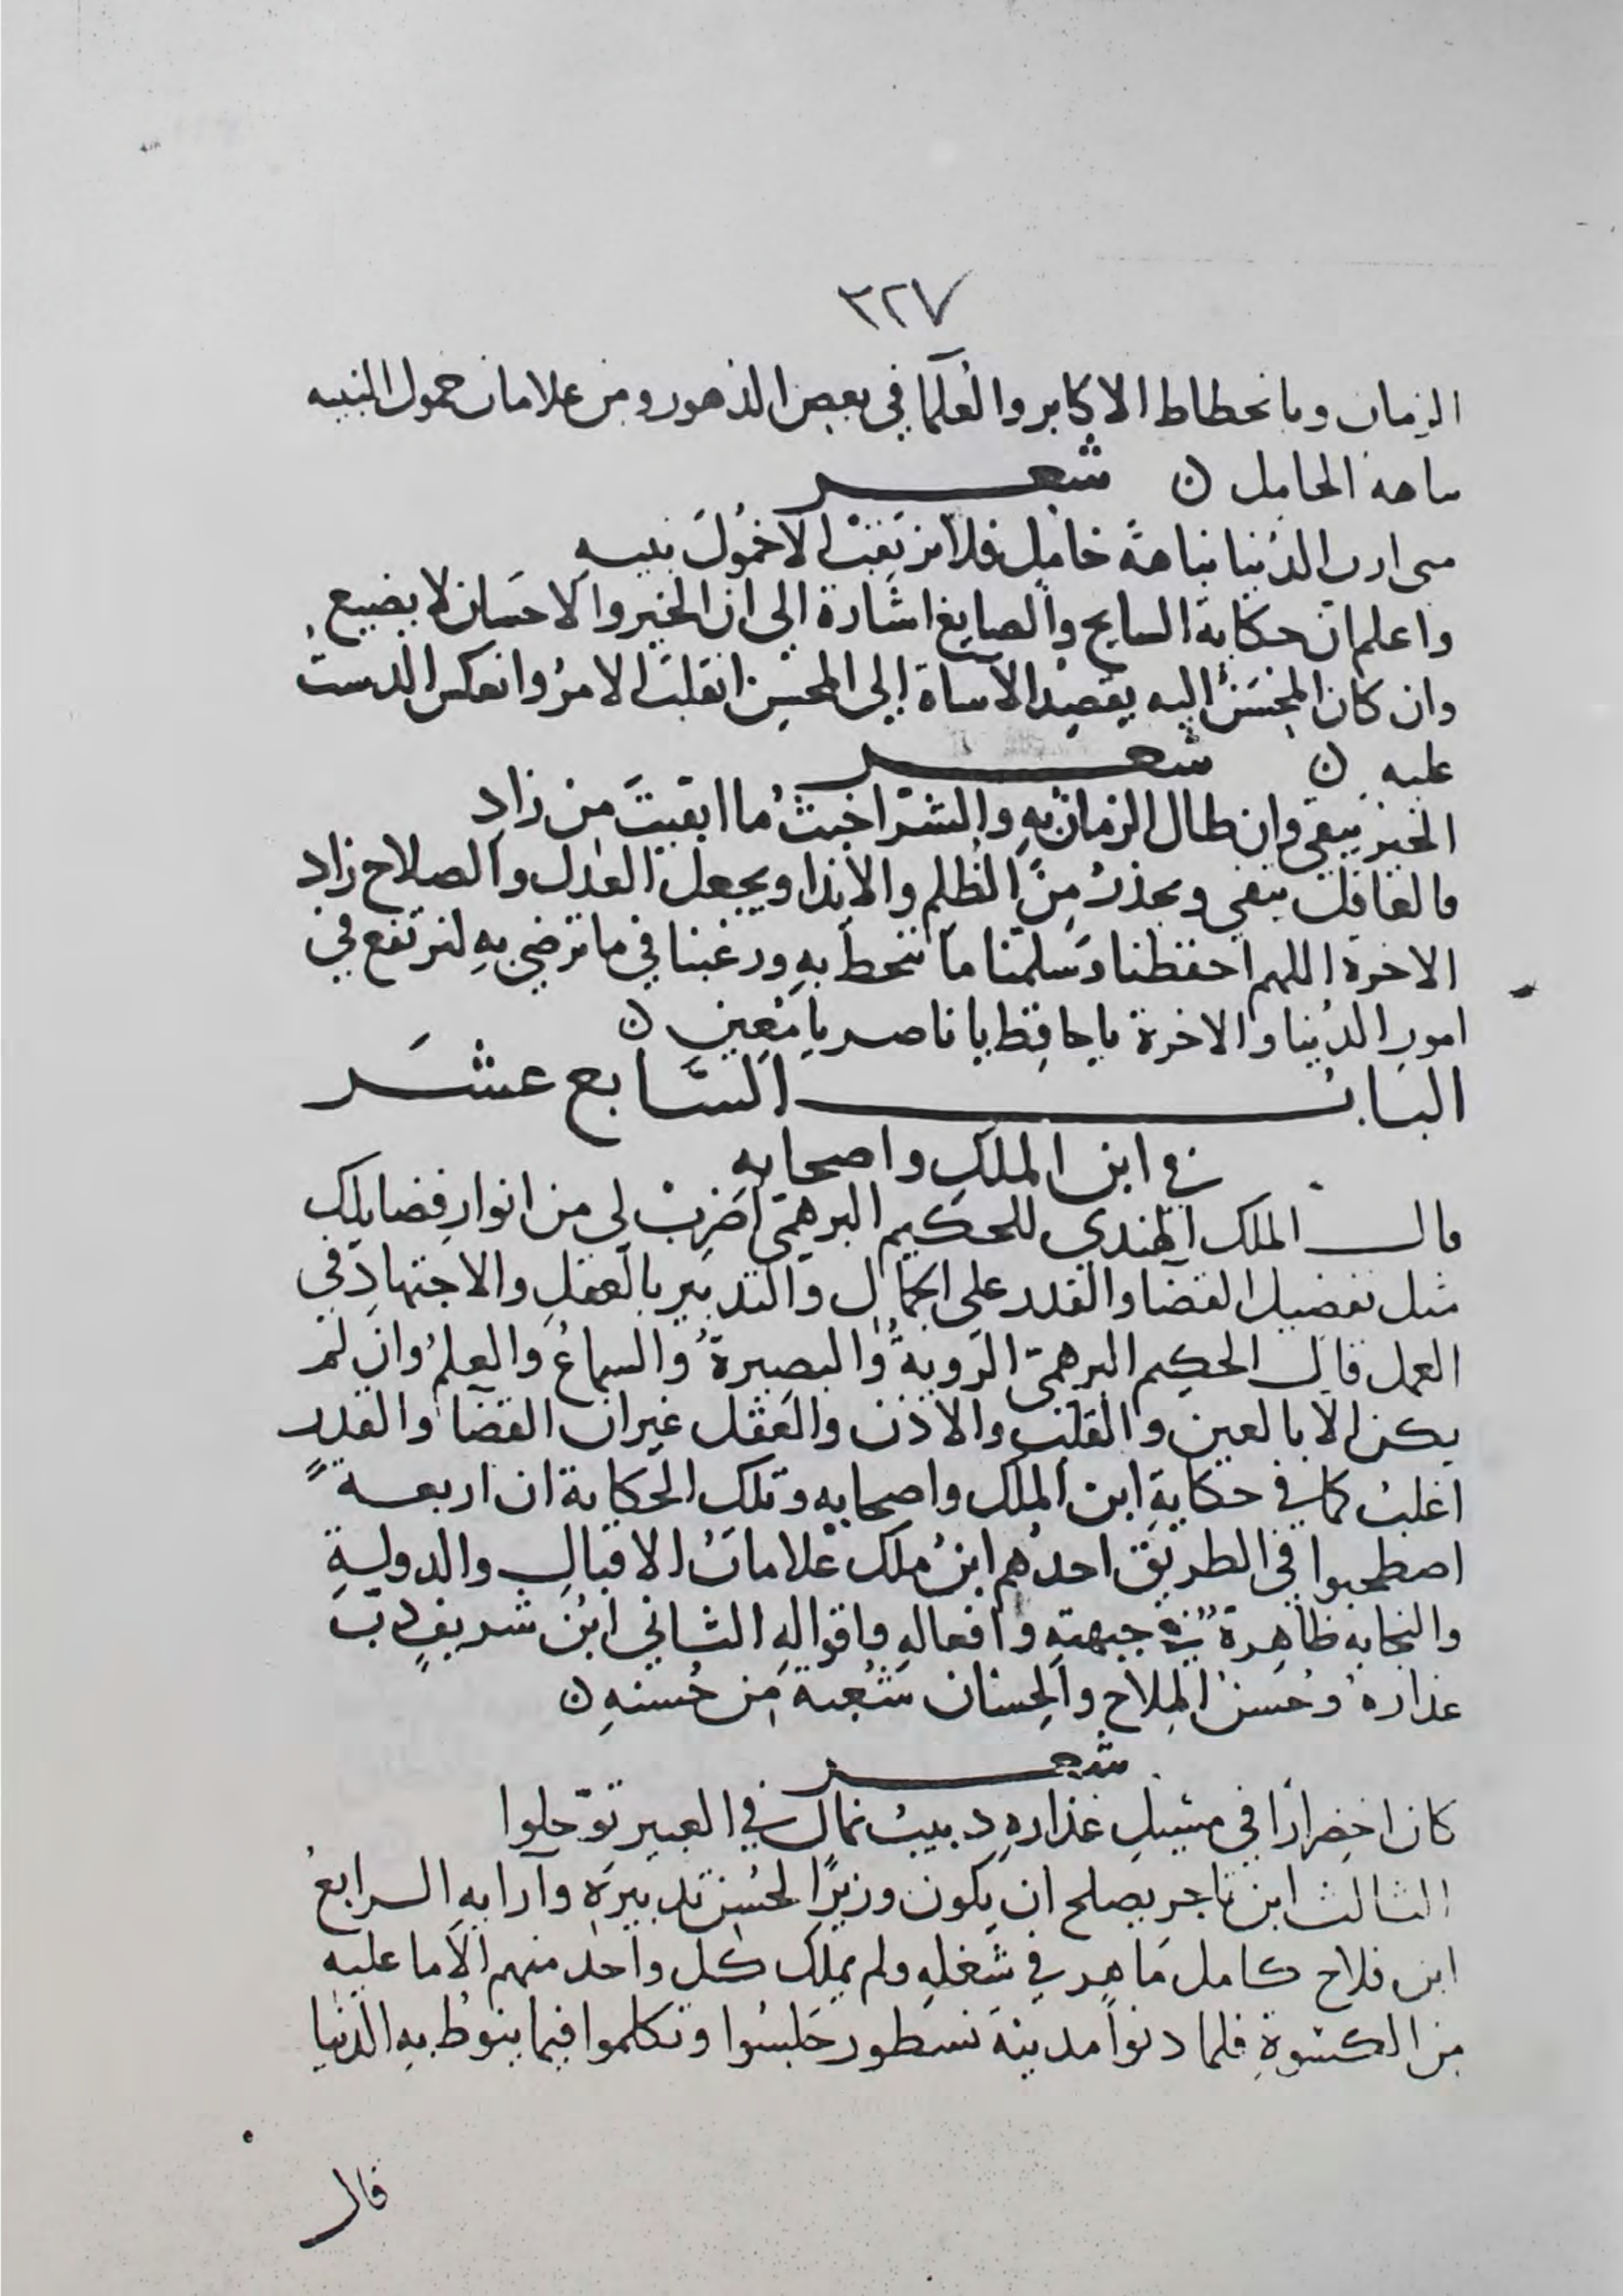 ٣٢٧
الزمان وبانحطاط الاكابر والعُلَمآ في بعض الدهور ومن علامات خمول النبيه
نباهة الخامل ن شعر
متى ارت الدُنيا نباهةَ خاملٍ فلا ترتقِبْ الاخمُولَ نبيهِ
واعلم ان حكاية السايح والصايغ اشارة الى ان الخير والاحسَان لا يضيع
وان كان المحسَنُ اليه يقصِدْ الآساة إلى المحسِن انقلبَ الامرُ وانعكس الدست
عليه ن شعر
الخير يبقى وان طال الزمان بهِ والشرّ اخبثُ ما ابقيتَ من زادِ
فالعاقل يتقي ويحذرُ مِنَ الظُلِم والايذا ويجعل العدل والصلاح زاد
الاخرة اللهم احفظنا وَسَلّمنا مما تنحط بهِ ورغبنا في ما ترضى بهِ لنرتفع في
امورِ الدُنيا والاخرة يا حافِظ يا ناصر يا مُعِين ن
البابُ السَّابع عشَر
في ابن الملكِ واصحابهِ
قال الملك الهندي للحكيم البرهمّي اضرِبْ لي من انوارِ فضايلك
مثل تفضيل القضآ والقدر على الجمال والتدبير بالعقلِ والاجتهادِ في
العمل قال الحكيم البرهمّى الرَوية والبصِيرةُ والسماعُ والعِلمُ وان لم
يكن الا بالعين والقلب والاذن والعَقْل غير ان القضآ والقدر
اغلبُ كما في حكايةِ ابن الملك واصحابهِ وتلك الحكاية ان اربعةً
اصطحبوا في الطريق احدُهم ابنُ ملك عَلاماتُ الاقبالِ والدوليةِ
والنجابه ظاهِرةٌ في جبهتهِ وافعالهِ واقوالهِ الثاني ابنُ شريفٍ دبّ
عذارهُ وحُسنُ المِلاح والحِسَان شُعبة مِن حُسنهِ ن
شعر
كان اخضِرارًا في مسيلِ عذارهِ دبيبُ نمال في العبير توّحلوا
الثالث ابن تاجر يصلح ان يكون وزيرًا لحُسن تدبيرهِ وآرايهِ الرابعُ
ابن فلاح كامل مَاهر في شَغلهِ ولم يملك كل واحد منهم الا ما عليه
من الكسوةِ فلما دنوا مدينة نسطور جَلسُوا وتكلموا فيما ينوطُ بهِ الدُنيا
قال